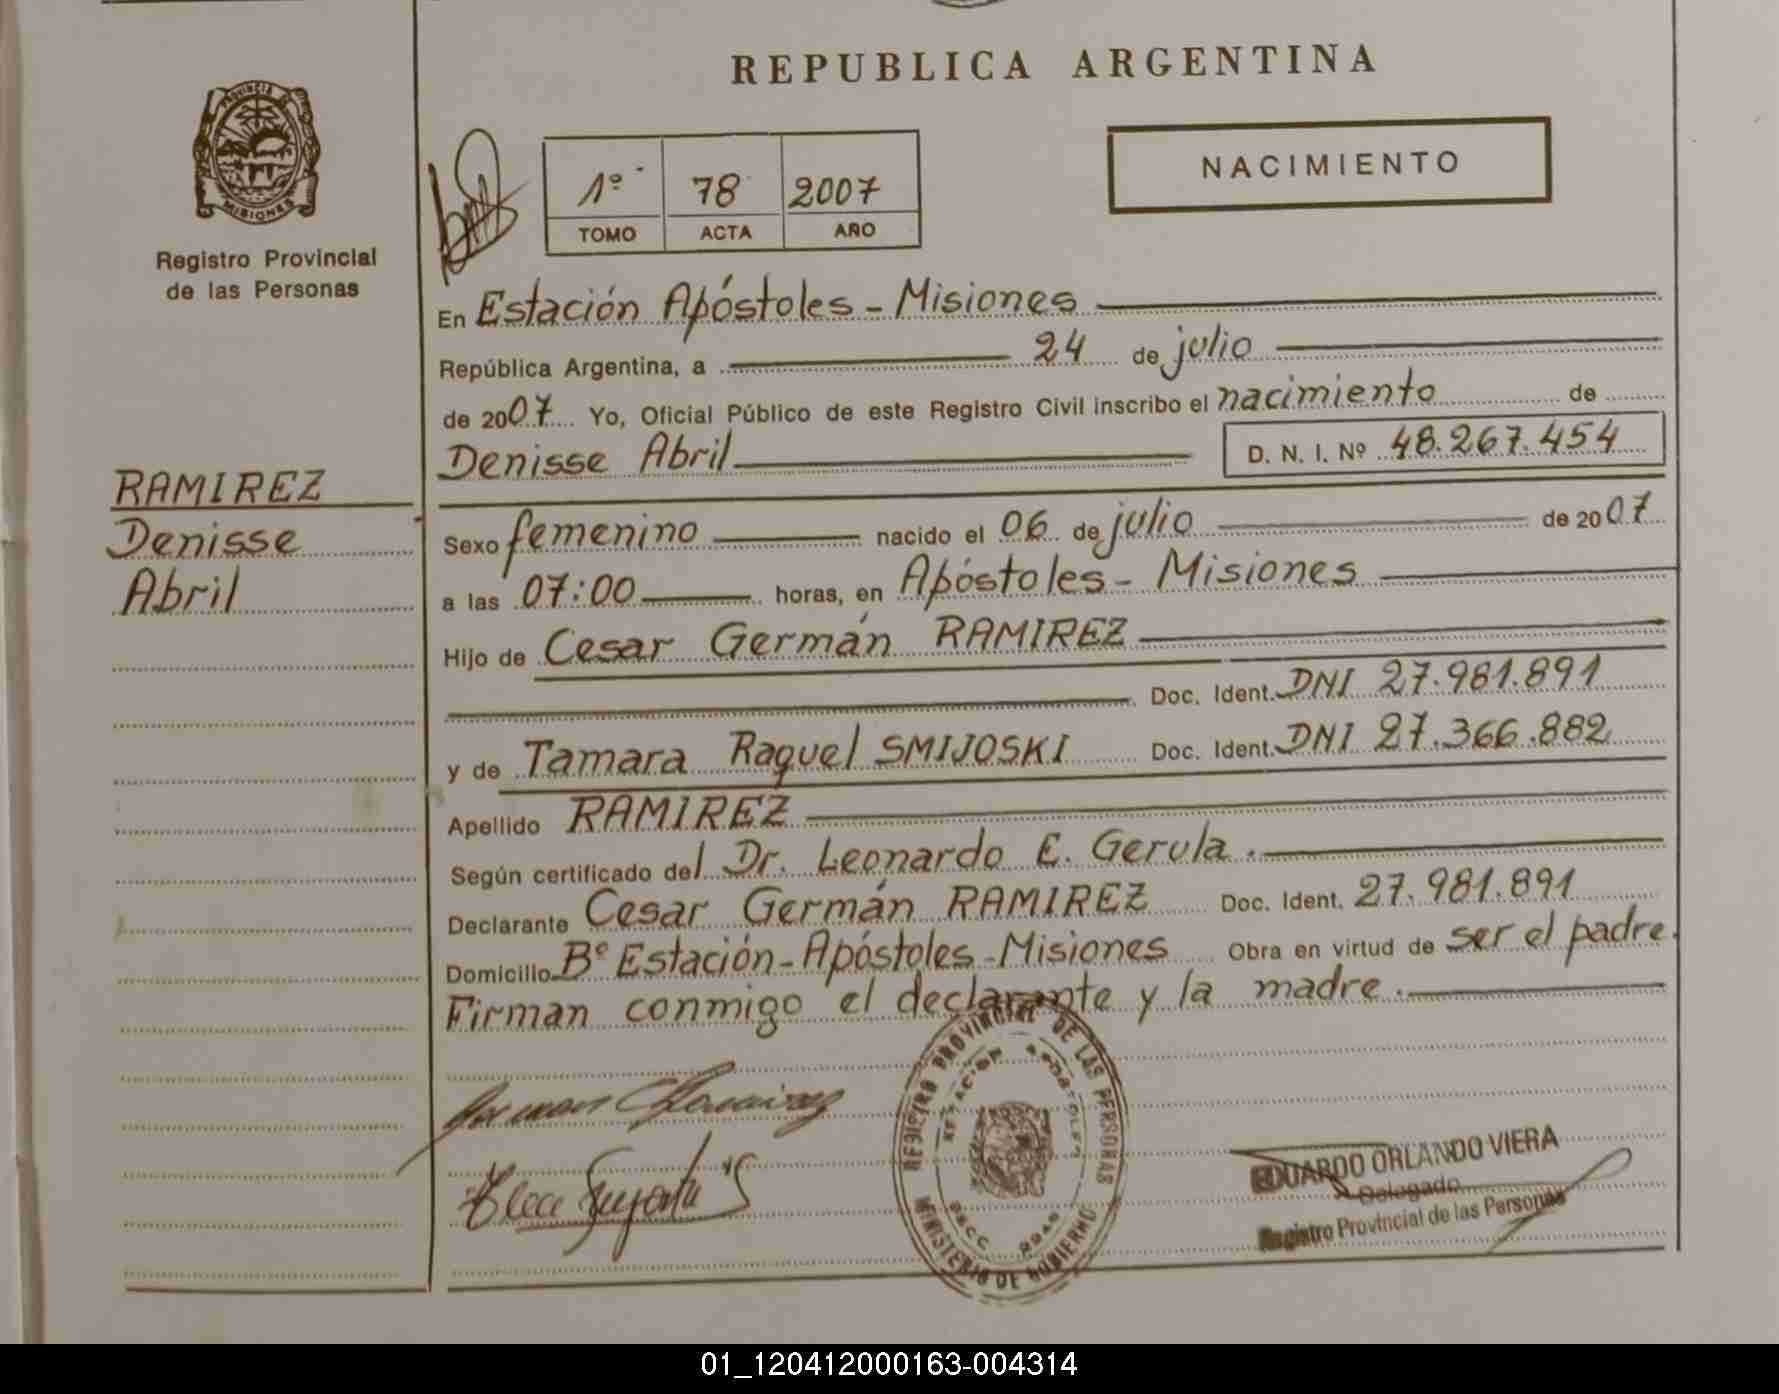 REPUBLICA ARGENTINA
PROVINCIA DE
MISIONES
Registro Provincial
de las Personas
1º 78 2007
TOMO ACTA AÑO
NACIMIENTO
En Estación Apóstoles - Misiones
República Argentina, a 24 de julio
de 2007 Yo, Oficial Público de este Registro Civil inscribo el nacimiento de
Denisse Abril D. N. I. Nº 48.267.454
RAMIREZ
Denisse
Abril
Sexo femenino nacido el 06 de julio de 2007
a las 07:00 horas, en Apóstoles - Misiones
Hijo de Cesar Germán RAMIREZ
Doc. Ident. DNI 27.981.891
y de Tamara Raquel SMIJOSKI Doc. Ident. DNI 27.366.882
Apellido RAMIREZ
Según certificado del Dr. Leonardo E. Gerula.
Declarante Cesar Germán RAMIREZ Doc. Ident. 27.981.891
Domicilio Bº Estación - Apóstoles - Misiones Obra en virtud de ser el padre.
Firman conmigo el declarante y la madre.
REGISTRO PROVINCIAL DE LAS PERSONAS
MINISTERIO DE GOBIERNO
EDUARDO ORLANDO VIERA
Delegado
Registro Provincial de las Personas
01_120412000163-004314